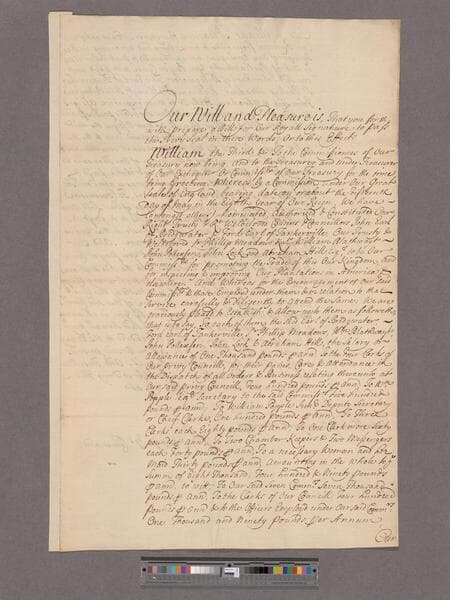 Our Will and Pleasure is, That you forth
with prepare a Bill for Our Royall Signature to pass
the Privy Seal in these Words, Or to this Effect
William the Third &c To the Commissioners of Our
Treasury now being, And to the Treasurer and Under Treasurer
of Our Exchequer Or Commissrs of Our Treasury for the time
being Greeting. Whereas by a Commission under Our Great
Seale of England bearing date on or about the Fifteenth
Day of May in the Eighth Year of Our Reign, We have
(amongst others) Nominated Authorized & Constituted Our
Right Trusty & Welbeloved Cousins & Councillors John Earl
of Bridgwater Ford Earl of Tankerville, Our Trusty &
Welbeloved Sr Phillip Meadows Knt William Blathwayt
John Pollexfen, John Lock and Abraham Hill Esqrs to be Our
Commissrs for promoting the Trade of this Our Kingdom, and
for inspecting & improving Our Plantations in America &
elsewhere. And Whereas for the Encouragement of Our said
Commissrs & those Employed under them in relation to the said
Service carefully & Diligently to attend the same. We are
graciously pleased to Establish & allow unto them as followeth
that is to say, To each of them the said Earl of Bridgwater
Ford Earl of Tankerville, Sr Phillip Meadows, Wm Blathwayt
John Pollexfen, John Lock & Abraham Hill, the Salary or
allowance of One Thousand Pounds p Ann. To the Four Clerks of
Our Privy Councill, for their Paines, Care & attendance in
the Dispatch of all Orders & Business relating thereunto at
Our said Privy Councill, Four hundred pounds p Ann. To Wm
Popple Esqr Secretary to the said Commissrs Five hundred
Pounds p Ann. To William Popple Junr Deputy Secretary
or Chief Clerke, One hundred Pounds p Ann. To Three
Clerks each Eighty Pounds p Ann. To One Clerk more Sixty
pounds p Ann. To Two Chamber Keepers & Two Messengers
each Forty Pounds p Ann. To a necessary Woman and for
Mops Thirty Pounds p Ann. Amounting in the whole to ye
Summe of Eight Thousand Four hundred & Ninety Pounds
p Ann. to witt To Our said Seven Commrs Seven Thousand
Pounds p Ann. To the Clerks of Our Councill Four hundred
Pounds p Ann. & to the Officers Employed under Our said Commrs
One Thousand and Ninety Pounds per Annum